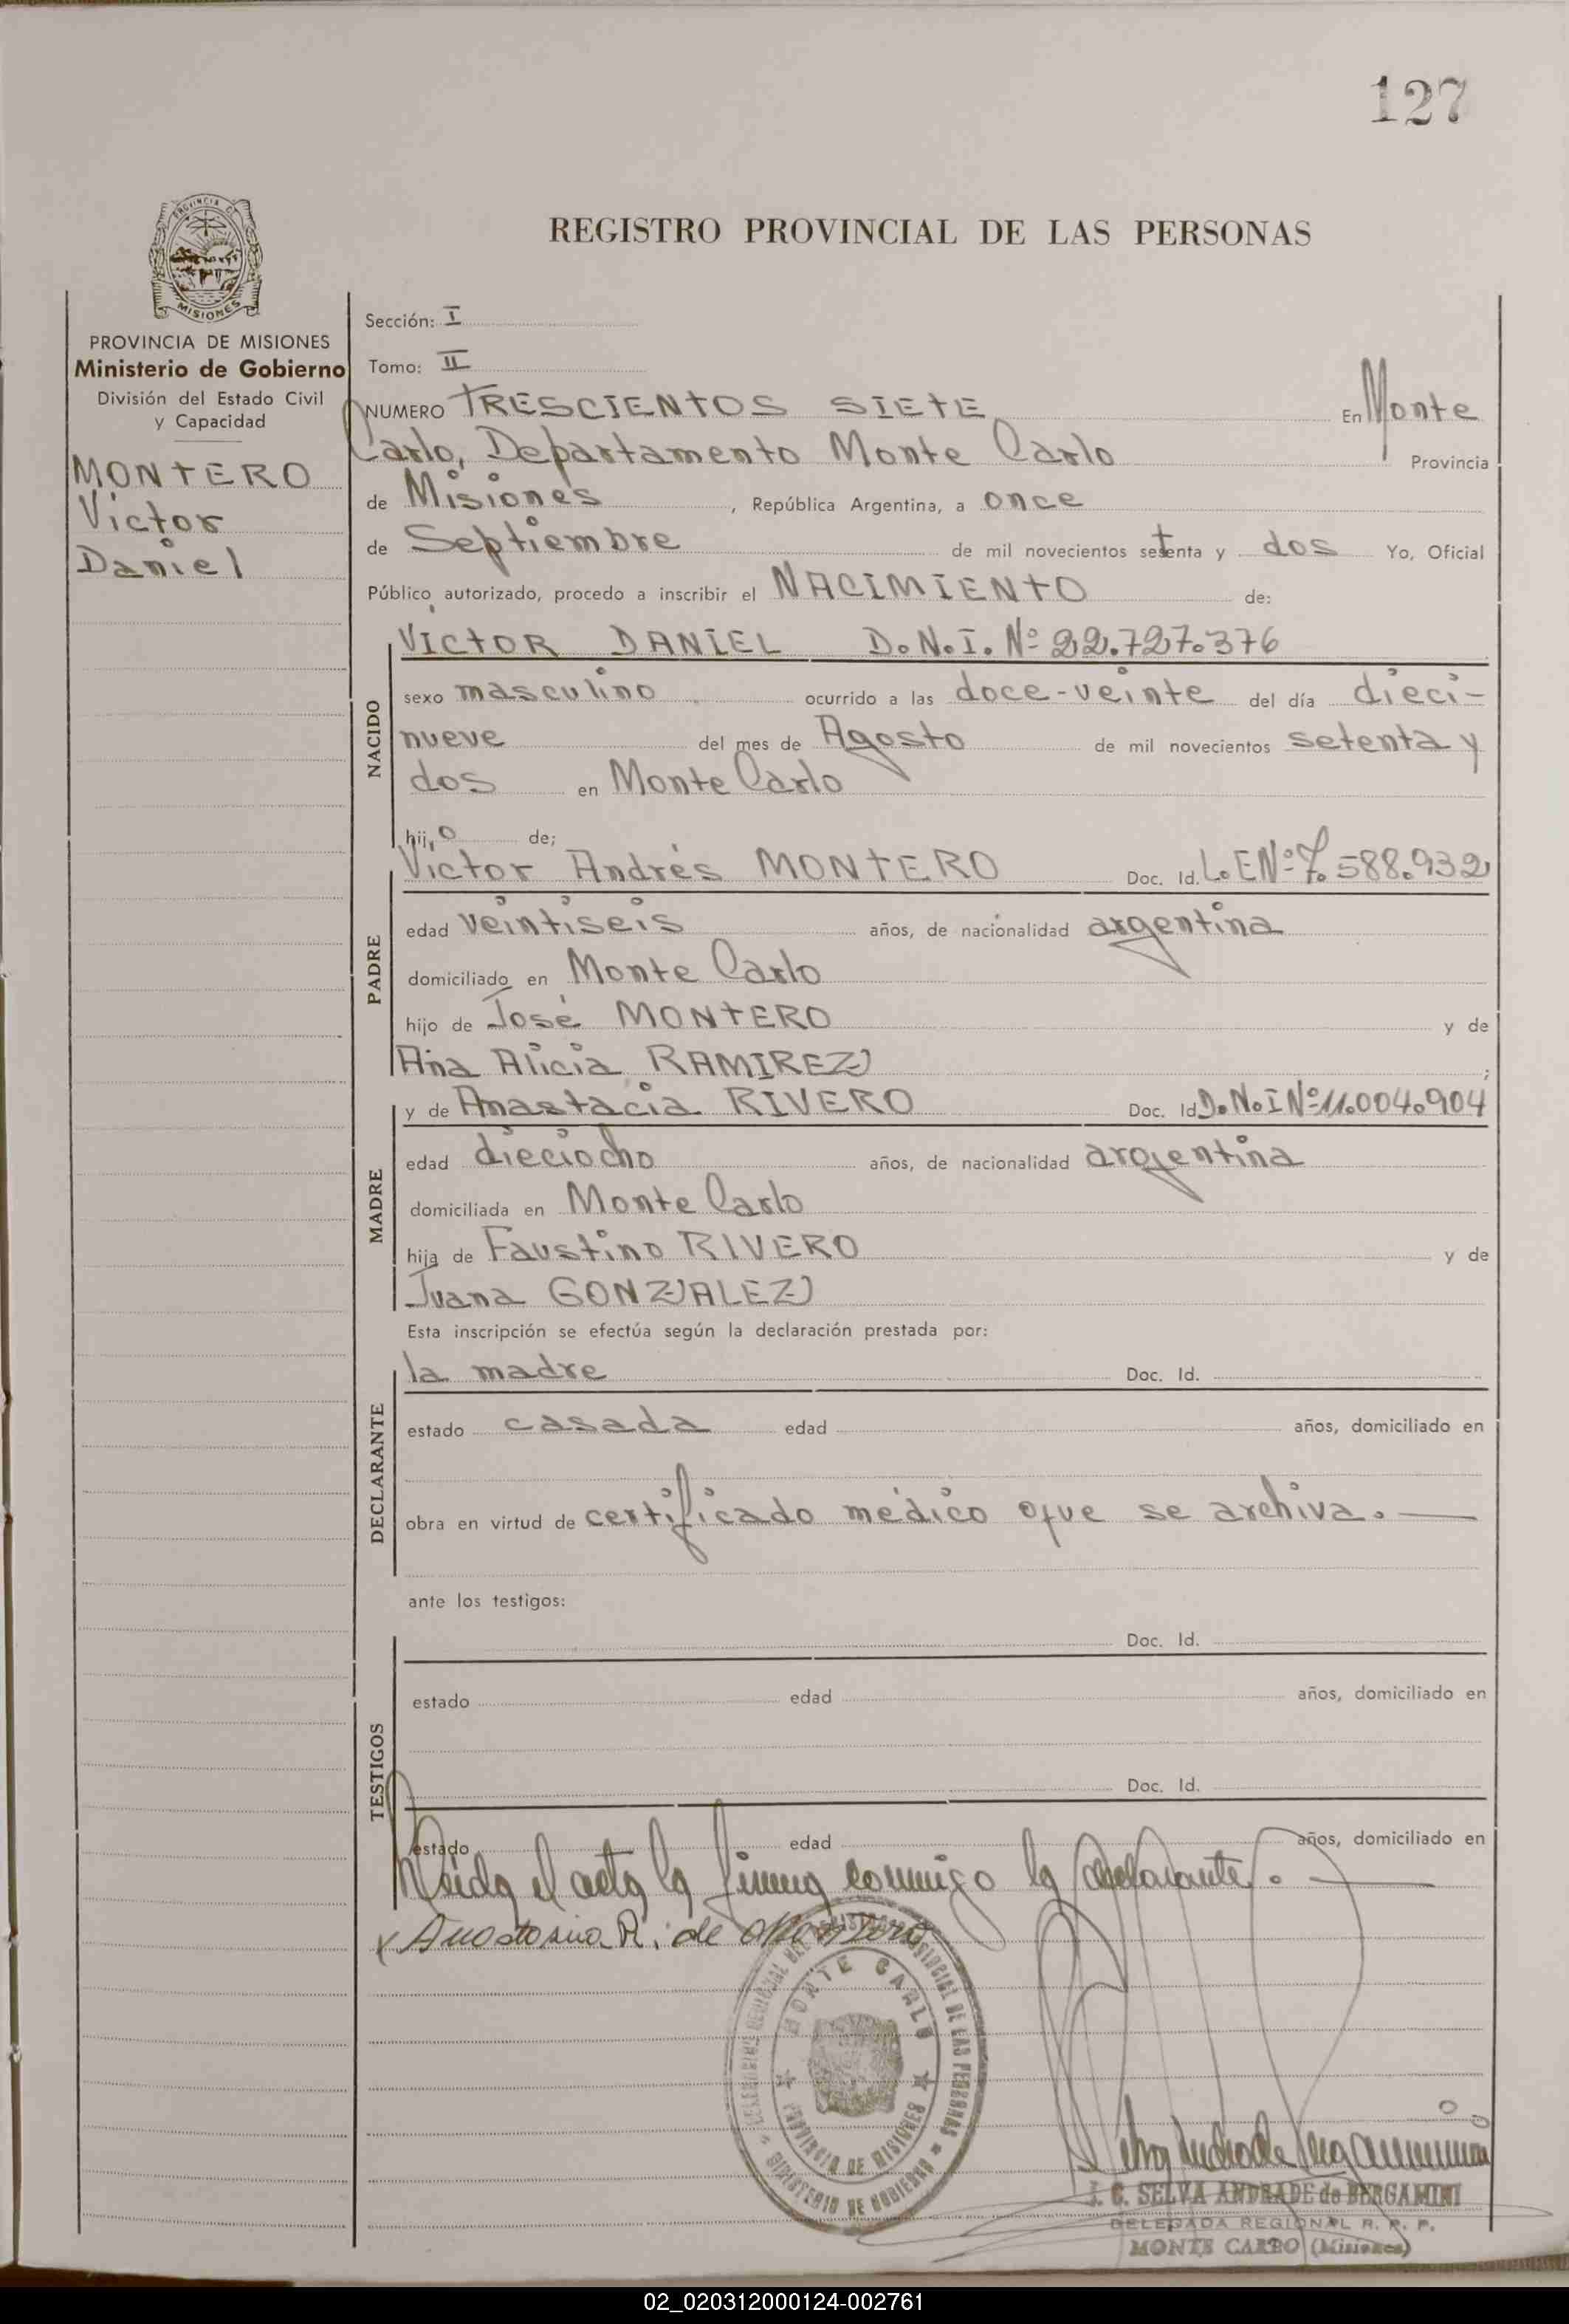 127
REGISTRO PROVINCIAL DE LAS PERSONAS
PROVINCIA DE MISIONES
Ministerio de Gobierno
División del Estado Civil
y Capacidad
MONTERO
Victor
Daniel
Sección: I
Tomo: II
NUMERO TRESCIENTOS SIETE En Monte
Carlo, Departamento Monte Carlo Provincia
de Misiones, República Argentina, a once
de Septiembre de mil novecientos setenta y dos Yo, Oficial
Público autorizado, procedo a inscribir el NACIMIENTO de:
NACIDO
VICTOR DANIEL D.N.I. Nº 22.727.376
sexo masculino ocurrido a las doce-veinte del día dieci-
nueve del mes de Agosto de mil novecientos setenta y
dos en Monte Carlo
hijo de;
PADRE
Victor Andrés MONTERO Doc. Id. L.E Nº 7.588.932
edad veintiseis años, de nacionalidad argentina
domiciliado en Monte Carlo
hijo de José MONTERO y de
Ana Alicia RAMIREZ ;
MADRE
y de Anastacia RIVERO Doc. Id D.N.I Nº 11.004.904
edad dieciocho años, de nacionalidad argentina
domiciliada en Monte Carlo
hija de Faustino RIVERO y de
Juana GONZALEZ
Esta inscripción se efectúa según la declaración prestada por:
DECLARANTE
la madre Doc. Id.
estado casada edad años, domiciliado en
obra en virtud de certificado médico que se archiva.
ante los testigos:
TESTIGOS
Doc. Id.
estado edad años, domiciliado en
Doc. Id.
estado edad años, domiciliado en
Leida el acta la firma conmigo la declarante.
x Anastasia R. de Montero
MONTE CARLO
PROVINCIA DE MISIONES
MINISTERIO DE GOBIERNO
PROVINCIAL DE LAS PERSONAS
J. C. SELVA ANDRADE de BERGAMINI
DELEGADA REGIONAL R. P. P.
MONTE CARLO (Misiones)
02_020312000124-002761